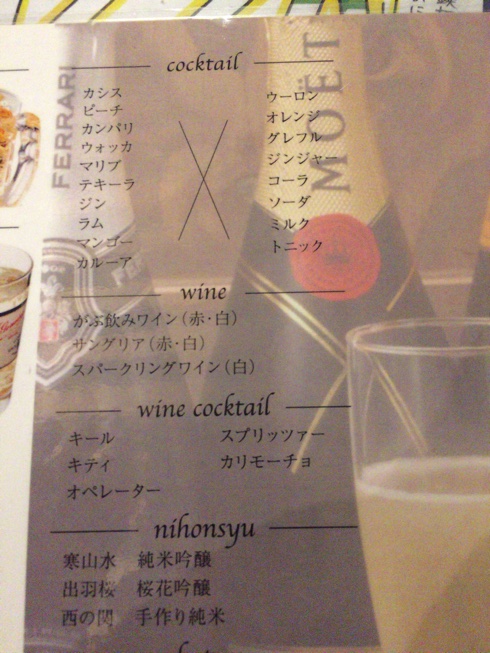 cocktail
カシス
ピーチ
カンパリ
ウォッカ
マリブ
テキーラ
ジン
ラム
マンゴー
カルーア
ウーロン
オレンジ
グレフル
ジンジャー
コーラ
ソーダ
ミルク
トニック
wine
がぶ飲みワイン(赤・白)
サングリア(赤・白)
スパークリングワイン(白)
wine cocktail
キール
キティ
オペレーター
スプリッツァー
カリモーチョ
nihonsyu
寒山水 純米吟醸
出羽桜 桜花吟醸
西の関 手作り純米
FERRARI
MOËT